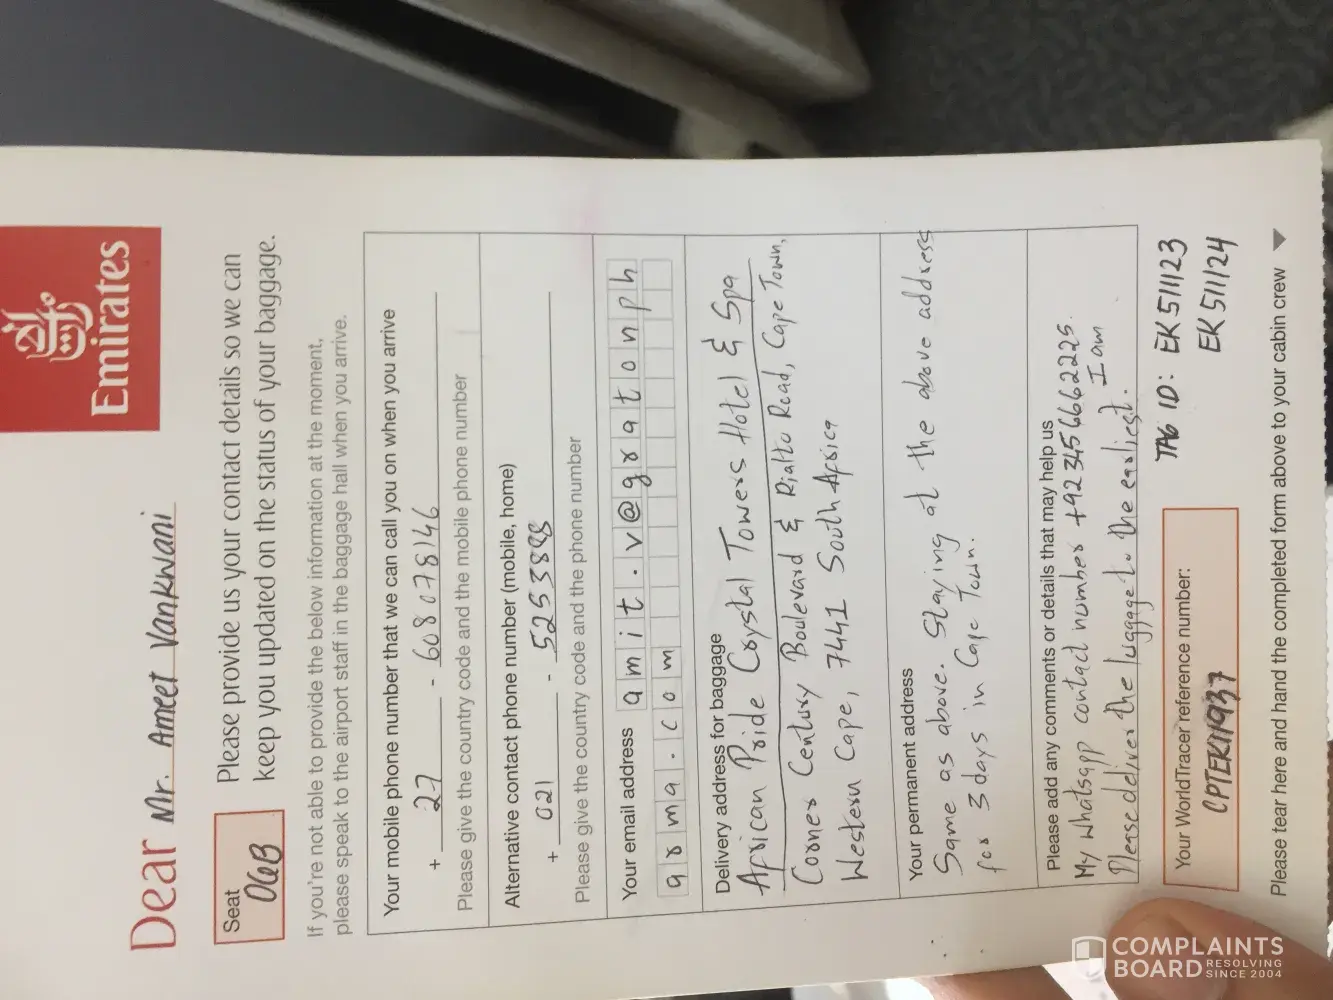 Emirates
Dear Mr. Ameet Vankwani
Seat
06B
Please provide us your contact details so we can
keep you updated on the status of your baggage.
If you're not able to provide the below information at the moment,
please speak to the airport staff in the baggage hall when you arrive.
Your mobile phone number that we can call you on when you arrive
+ 27 - 608078146
Please give the country code and the mobile phone number
Alternative contact phone number (mobile, home)
+ 021 - 5253888
Please give the country code and the phone number
Your email address amit.v@gratonph
arma.com
Delivery address for baggage
African Pride Crystal Towers Hotel & Spa
Corner Century Boulevard & Rialto Road, Cape Town,
Western Cape, 7441 South Africa
Your permanent address
Same as above. Staying at the above address
for 3 days in Cape Town.
Please add any comments or details that may help us
My whatsapp contact number +923456662225. I am
Please deliver the luggage to the earliest.
TAG ID: EK511123
EK511124
Your WorldTracer reference number:
CPTEK11937
Please tear here and hand the completed form above to your cabin crew
COMPLAINTS
BOARD RESOLVING
SINCE 2004